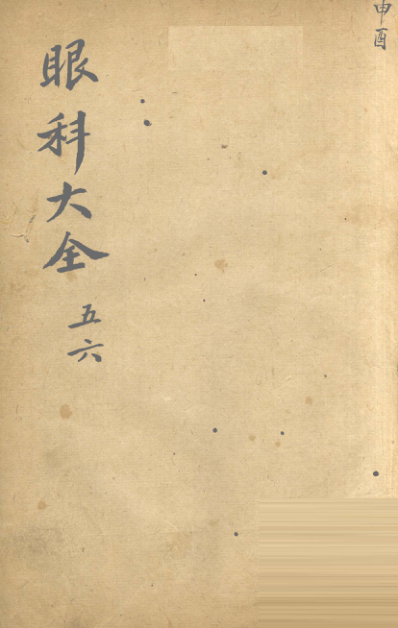 申酉
眼科大全 五六